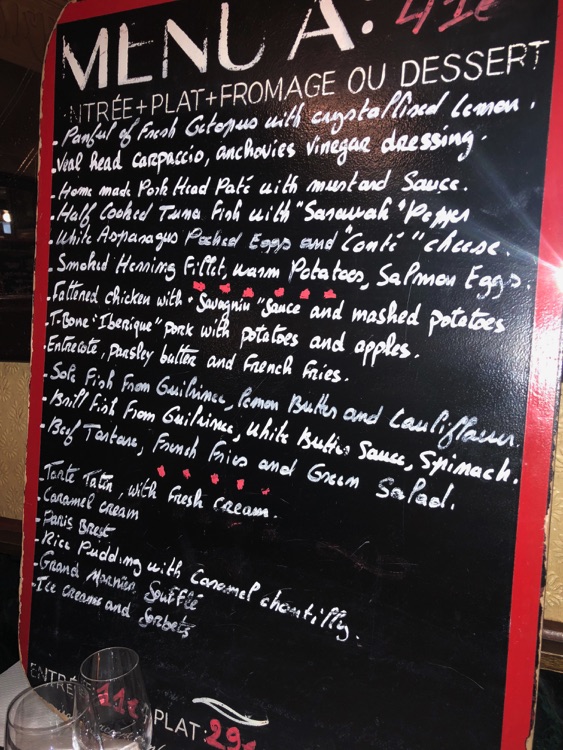 MENU A: 41€
NTRÉE+PLAT+FROMAGE OU DESSERT
- Panful of Fresh Octopus with crystallised Lemon.
- Veal head carpaccio, anchovies vinegar dressing.
- Home made Pork Head Paté with mustard Sauce.
- Half Cooked Tuna Fish with "Sarawak" Pepper
- White Asparagus Poched Eggs and "Conté" cheese.
- Smoked Herring Fillet, warm Potatoes, Salmon Eggs.
- Fattened chicken with "Savagnin" Sauce and mashed potatoes
- T-Bone "Iberique" pork with potatoes and apples.
- Entrecote, parsley butter and French Fries.
- Sole Fish From Guilvinec, Lemon Butter and Cauliflower.
- Brill Fish From Guilvinec, White Butter Sauce, Spinach.
- Beef Tartare, French Fries and Green Salad.
- Tarte Tatin, with Fresh cream.
- Caramel cream
- Paris Brest
- Rice Pudding with Caramel chantilly.
- Grand Marnier Soufflé
- Ice creams and Sorbets
ENTRÉE: 11€ PLAT: 29€